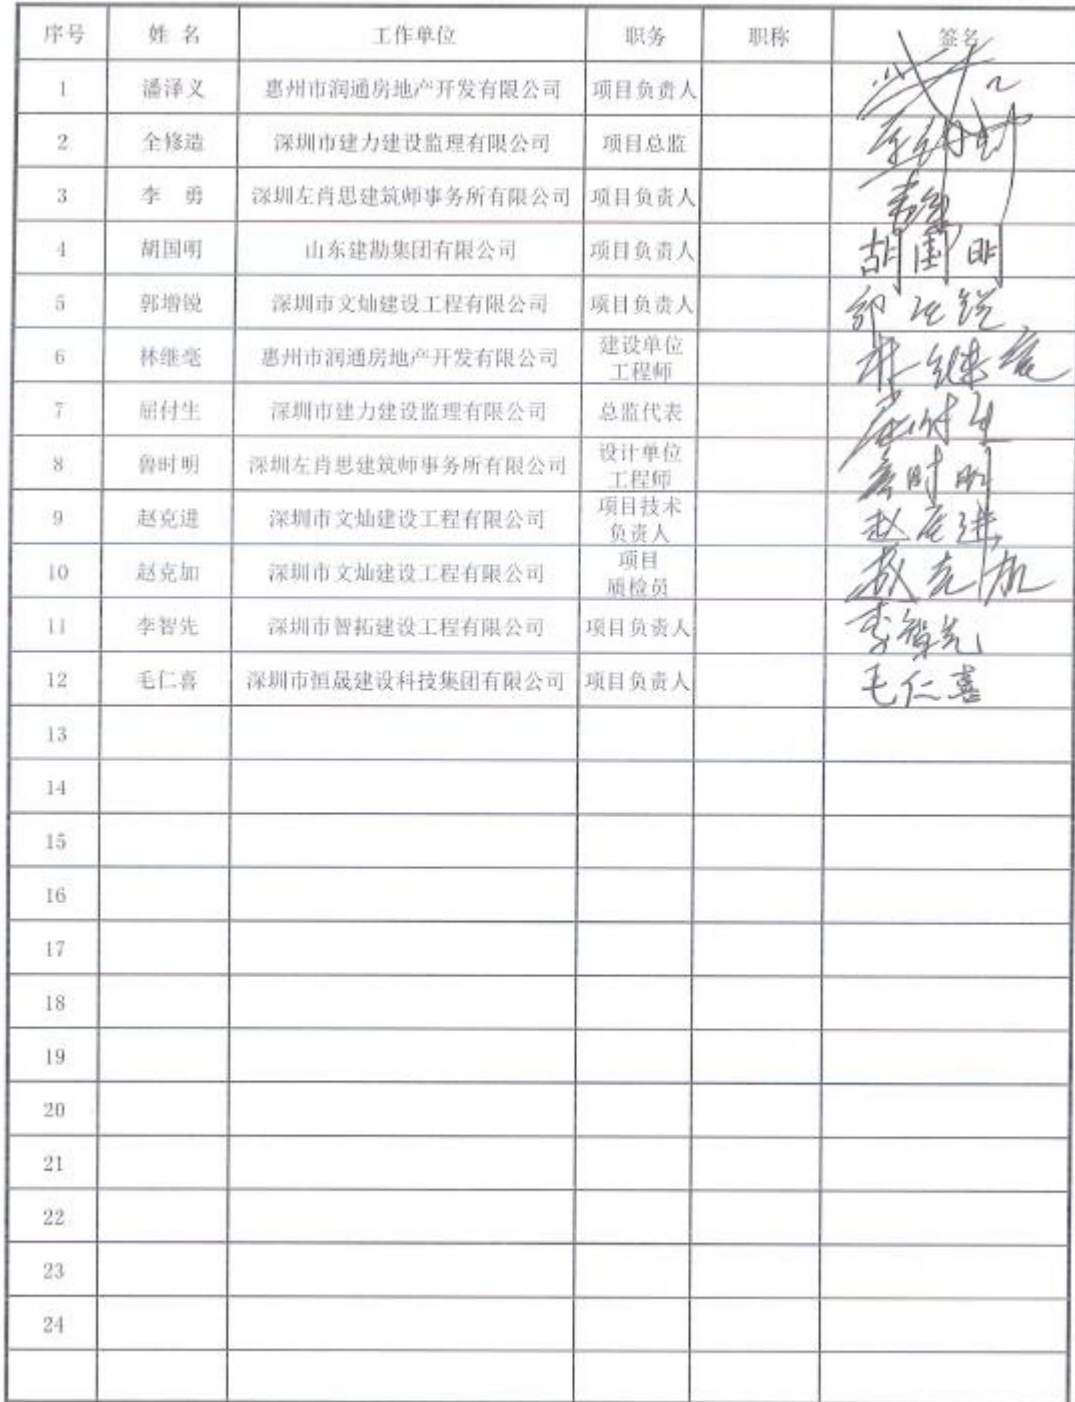 序号 姓 名 工作单位 职务 职称 签名
1 潘泽义 惠州市润通房地产开发有限公司 项目负责人
2 全修造 深圳市建力建设监理有限公司 项目总监
3 李 勇 深圳左肖思建筑师事务所有限公司 项目负责人
4 胡国明 山东建勘集团有限公司 项目负责人 胡国明
5 郭增锐 深圳市文灿建设工程有限公司 项目负责人
6 林继亮 惠州市润通房地产开发有限公司 建设单位
工程师
7 屈付生 深圳市建力建设监理有限公司 总监代表 屈付生
8 鲁时明 深圳左肖思建筑师事务所有限公司 设计单位
工程师 鲁时明
9 赵克进 深圳市文灿建设工程有限公司 项目技术
负责人 赵克进
10 赵克加 深圳市文灿建设工程有限公司 项目
质检员 赵克加
11 李智先 深圳市智拓建设工程有限公司 项目负责人 李智先
12 毛仁喜 深圳市恒晟建设科技集团有限公司 项目负责人 毛仁喜
13
14
15
16
17
18
19
20
21
22
23
24